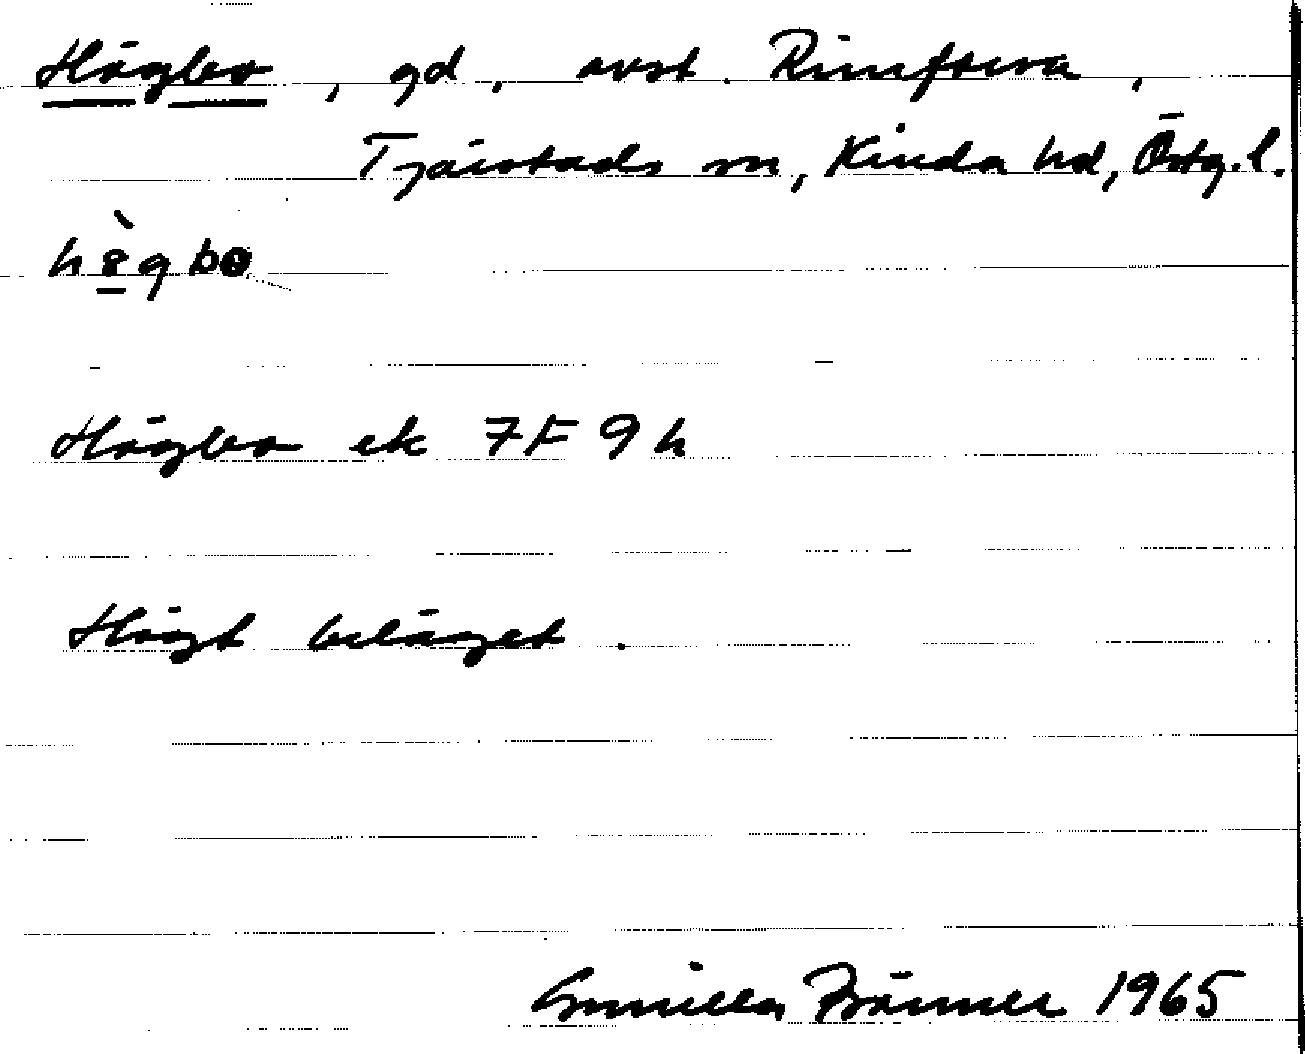 Högbo, gd, avst. Rimforsa,
Tjärstads sn, Kinda hd, Östg.l.
högbo
Högbo ek 7F 9h
Högt beläget.
Gunilla Bränner 1965